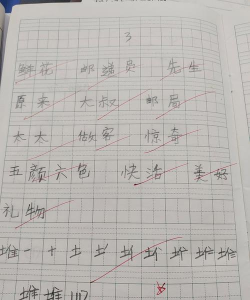 3
鲜花 邮递员 先生
原来 大叔 邮局
太太 做客 惊奇
五颜六色 快活 美好
礼物
堆一十土
堆堆